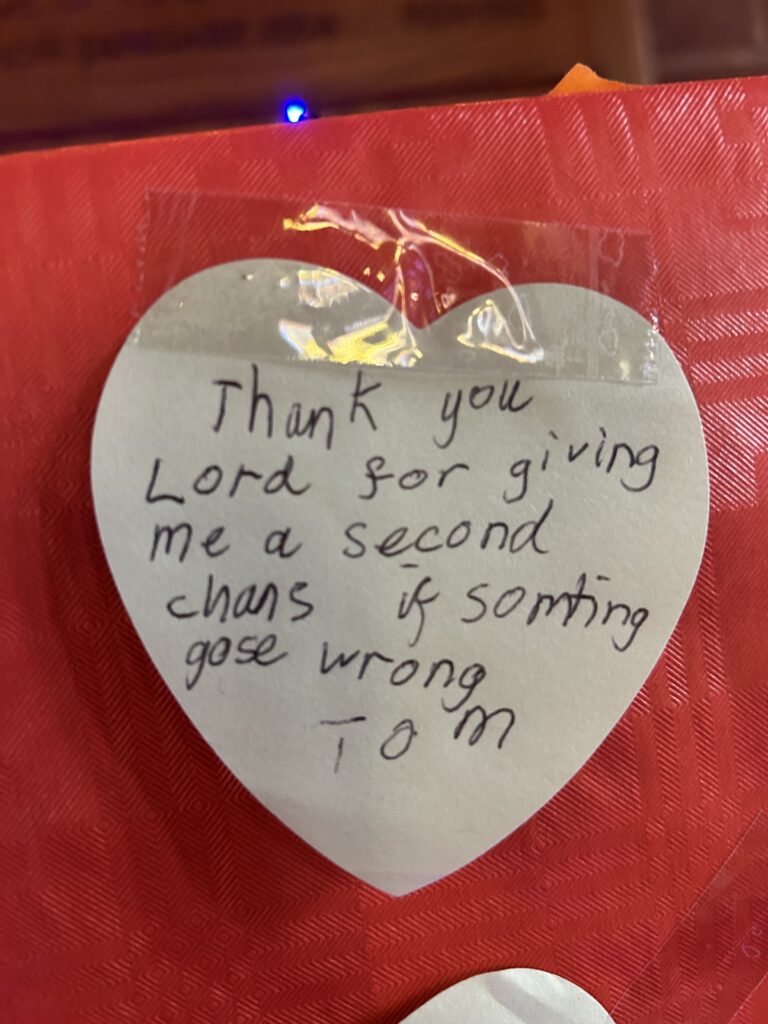 Thank you
Lord for giving
me a second
chans if somting
gose wrong
TOM